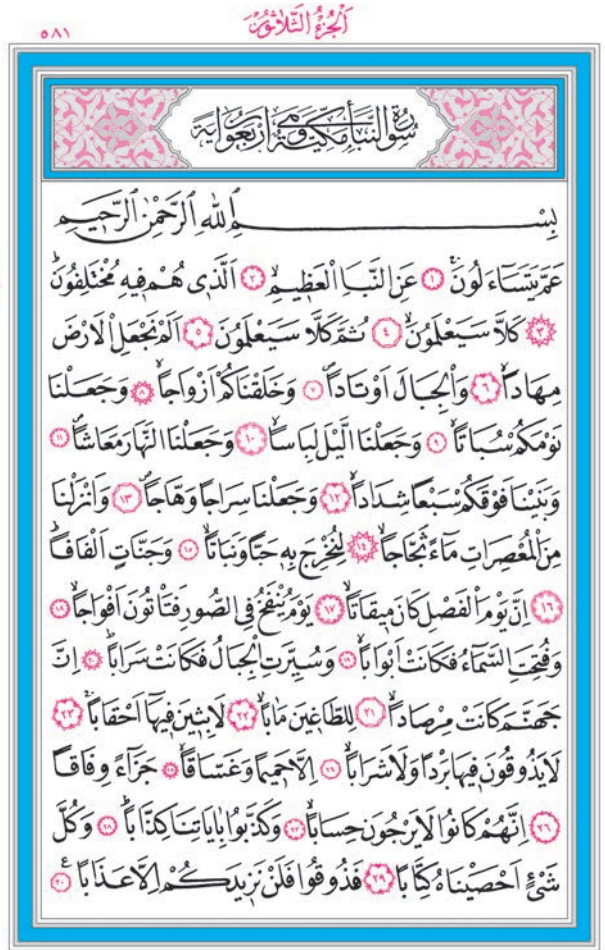 ٥٨١ اَلْجُزْءُ الثَّلَاثُونَ
سُورَةُ النَّبَأِ مَكِّيَّةٌ وَهِيَ اَرْبَعُونَ اٰيَةً
بِسْمِ اللّٰهِ الرَّحْمٰنِ الرَّحٖيمِ
عَمَّ يَتَسَٓاءَلُونَۚ ﴿١﴾ عَنِ النَّبَاِ الْعَظٖيمِۙ ﴿٢﴾ اَلَّذٖى هُمْ فٖيهِ مُخْتَلِفُونَۜ
﴿٣﴾ كَلَّا سَيَعْلَمُونَۙ ﴿٤﴾ ثُمَّ كَلَّا سَيَعْلَمُونَ ﴿٥﴾ اَلَمْ نَجْعَلِ الْاَرْضَ
مِهَادًاۙ ﴿٦﴾ وَالْجِبَالَ اَوْتَادًاۙ ﴿٧﴾ وَخَلَقْنَاكُمْ اَزْوَاجًاۙ ﴿٨﴾ وَجَعَلْنَا
نَوْمَكُمْ سُبَاتًاۙ ﴿٩﴾ وَجَعَلْنَا الَّيْلَ لِبَاسًاۙ ﴿١٠﴾ وَجَعَلْنَا النَّهَارَ مَعَاشًاۖ ﴿١١﴾
وَبَنَيْنَا فَوْقَكُمْ سَبْعًا شِدَادًاۙ ﴿١٢﴾ وَجَعَلْنَا سِرَاجًا وَهَّاجًاۖ ﴿١٣﴾ وَاَنْزَلْنَا
مِنَ الْمُعْصِرَاتِ مَٓاءً ثَجَّاجًاۙ ﴿١٤﴾ لِنُخْرِجَ بِهٖ حَبًّا وَنَبَاتًاۙ ﴿١٥﴾ وَجَنَّاتٍ اَلْفَافًاۜ
﴿١٦﴾ اِنَّ يَوْمَ الْفَصْلِ كَانَ مٖيقَاتًاۙ ﴿١٧﴾ يَوْمَ يُنْفَخُ فِى الصُّورِ فَتَأْتُونَ اَفْوَاجًاۙ ﴿١٨﴾
وَفُتِحَتِ السَّمَٓاءُ فَكَانَتْ اَبْوَابًاۙ ﴿١٩﴾ وَسُيِّرَتِ الْجِبَالُ فَكَانَتْ سَرَابًاۜ ﴿٢٠﴾ اِنَّ
جَهَنَّمَ كَانَتْ مِرْصَادًاۙ ﴿٢١﴾ لِلطَّاغٖينَ مَاٰبًاۙ ﴿٢٢﴾ لَابِثٖينَ فٖيهَٓا اَحْقَابًاۚ ﴿٢٣﴾
لَا يَذُوقُونَ فٖيهَا بَرْدًا وَلَا شَرَابًاۙ ﴿٢٤﴾ اِلَّا حَمٖيمًا وَغَسَّاقًاۙ ﴿٢٥﴾ جَزَٓاءً وِفَاقًاۜ
﴿٢٦﴾ اِنَّهُمْ كَانُوا لَا يَرْجُونَ حِسَابًاۙ ﴿٢٧﴾ وَكَذَّبُوا بِاٰيَاتِنَا كِذَّابًاۜ ﴿٢٨﴾ وَكُلَّ
شَىْءٍ اَحْصَيْنَاهُ كِتَابًاۙ ﴿٢٩﴾ فَذُوقُوا فَلَنْ نَزٖيدَكُمْ اِلَّا عَذَابًا ع ﴿٣٠﴾